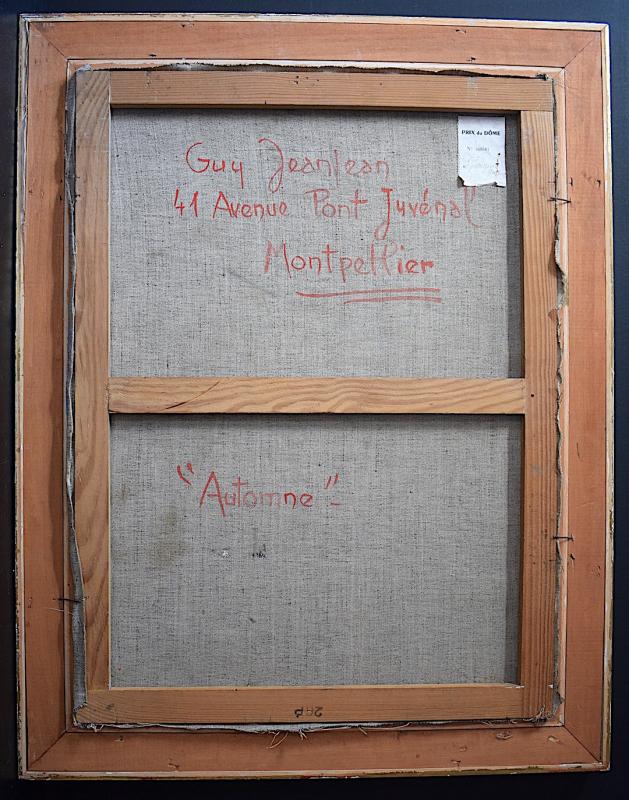 PRIX du DÔME
Guy Jeanjean
41 Avenue Pont Juvénal
Montpellier
"Automne"-